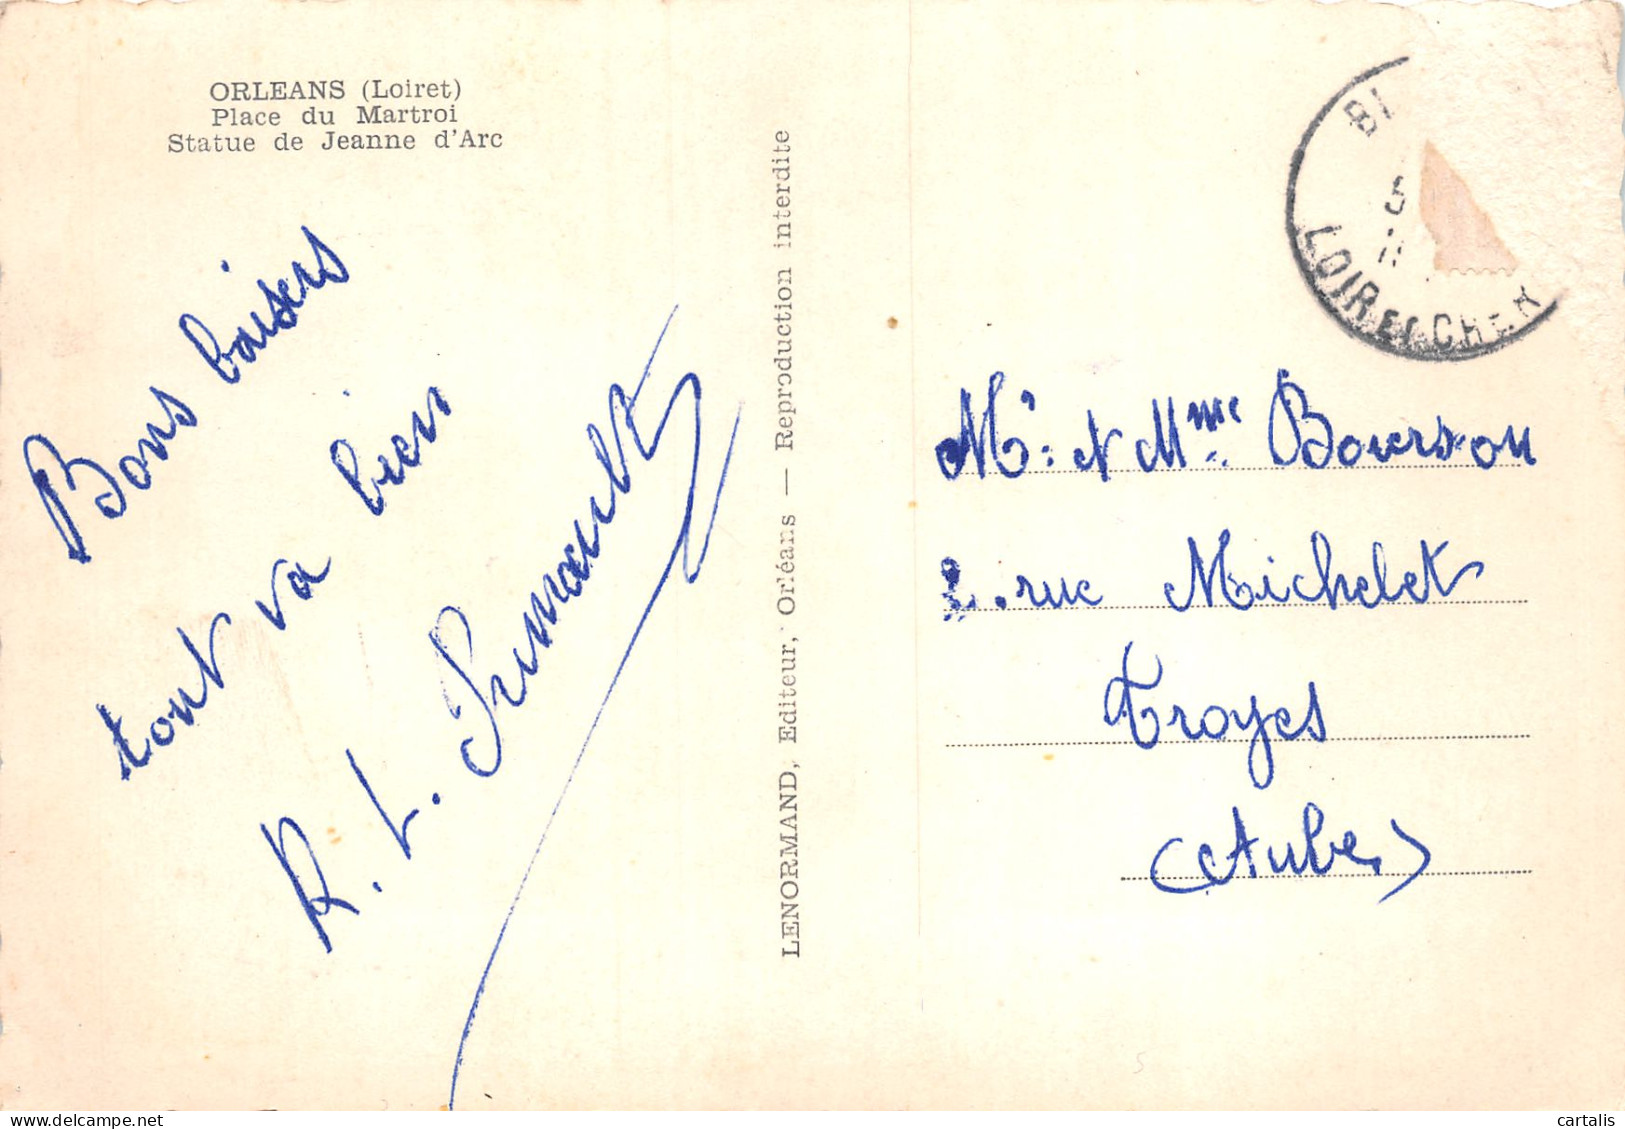 ORLEANS (Loiret)
Place du Martroi
Statue de Jeanne d'Arc
Bons baisers
tout va bien
R. L.
LENORMAND, Editeur, Orléans — Reproduction interdite
BL
5
LOIR ET CHER
Mr. & Mme. Bourson
2. rue Michelet
Troyes
(Aube)
delcampe.net
cartalis